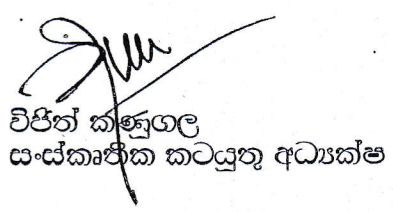 විජිත් කණුගල
සංස්කෘතික කටයුතු අධ්‍යක්ෂ